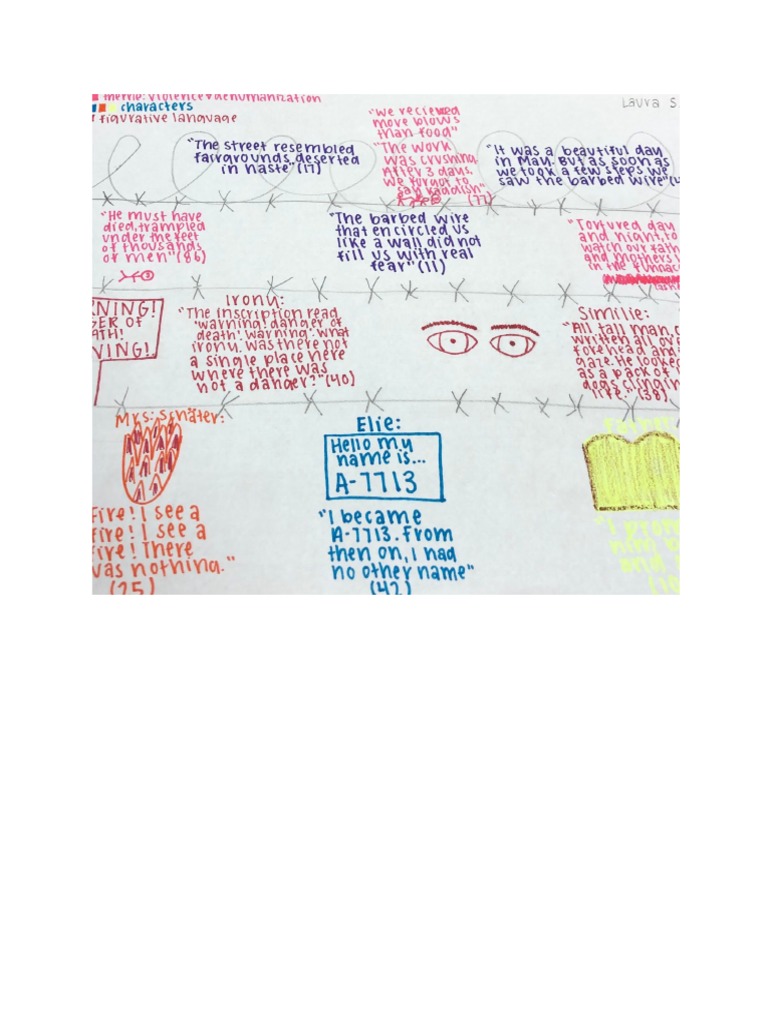 theme: violence + dehumanization
characters
figurative language
Laura S
"We recieved
more blows
than food"
"The work
was crushing
After 3 days,
we forgot to
say kaddish"
(77)
"The street resembled
fairgrounds deserted
in haste" (17)
"It was a beautiful day
in May. But as soon as
we took a few steps we
saw the barbed wire"
"He must have
died, trampled
under the feet
of thousands
of men" (86)
"The barbed wire
that encircled us
like a wall did not
fill us with real
fear" (11)
"Tortured day
and night, to
watch our fath
and mothers
in the furnac
RNING!
GER OF
ATH!
NING!
Irony:
"The inscription read
'warning! danger of
death'. warning. what
irony. was there not
a single place here
where there was
not a danger?" (40)
Similie:
"All tall man,
written all over
forehead and
gaze. He looked
as a pack of
dogs clinging
life." (38)
Mrs. Schäter:
Fire! I see a
fire! I see a
fire! There
was nothing."
(25)
Elie:
Hello my
name is...
A-7713
"I became
A-7713. From
then on, I had
no other name"
(42)
Father
"I
him
and